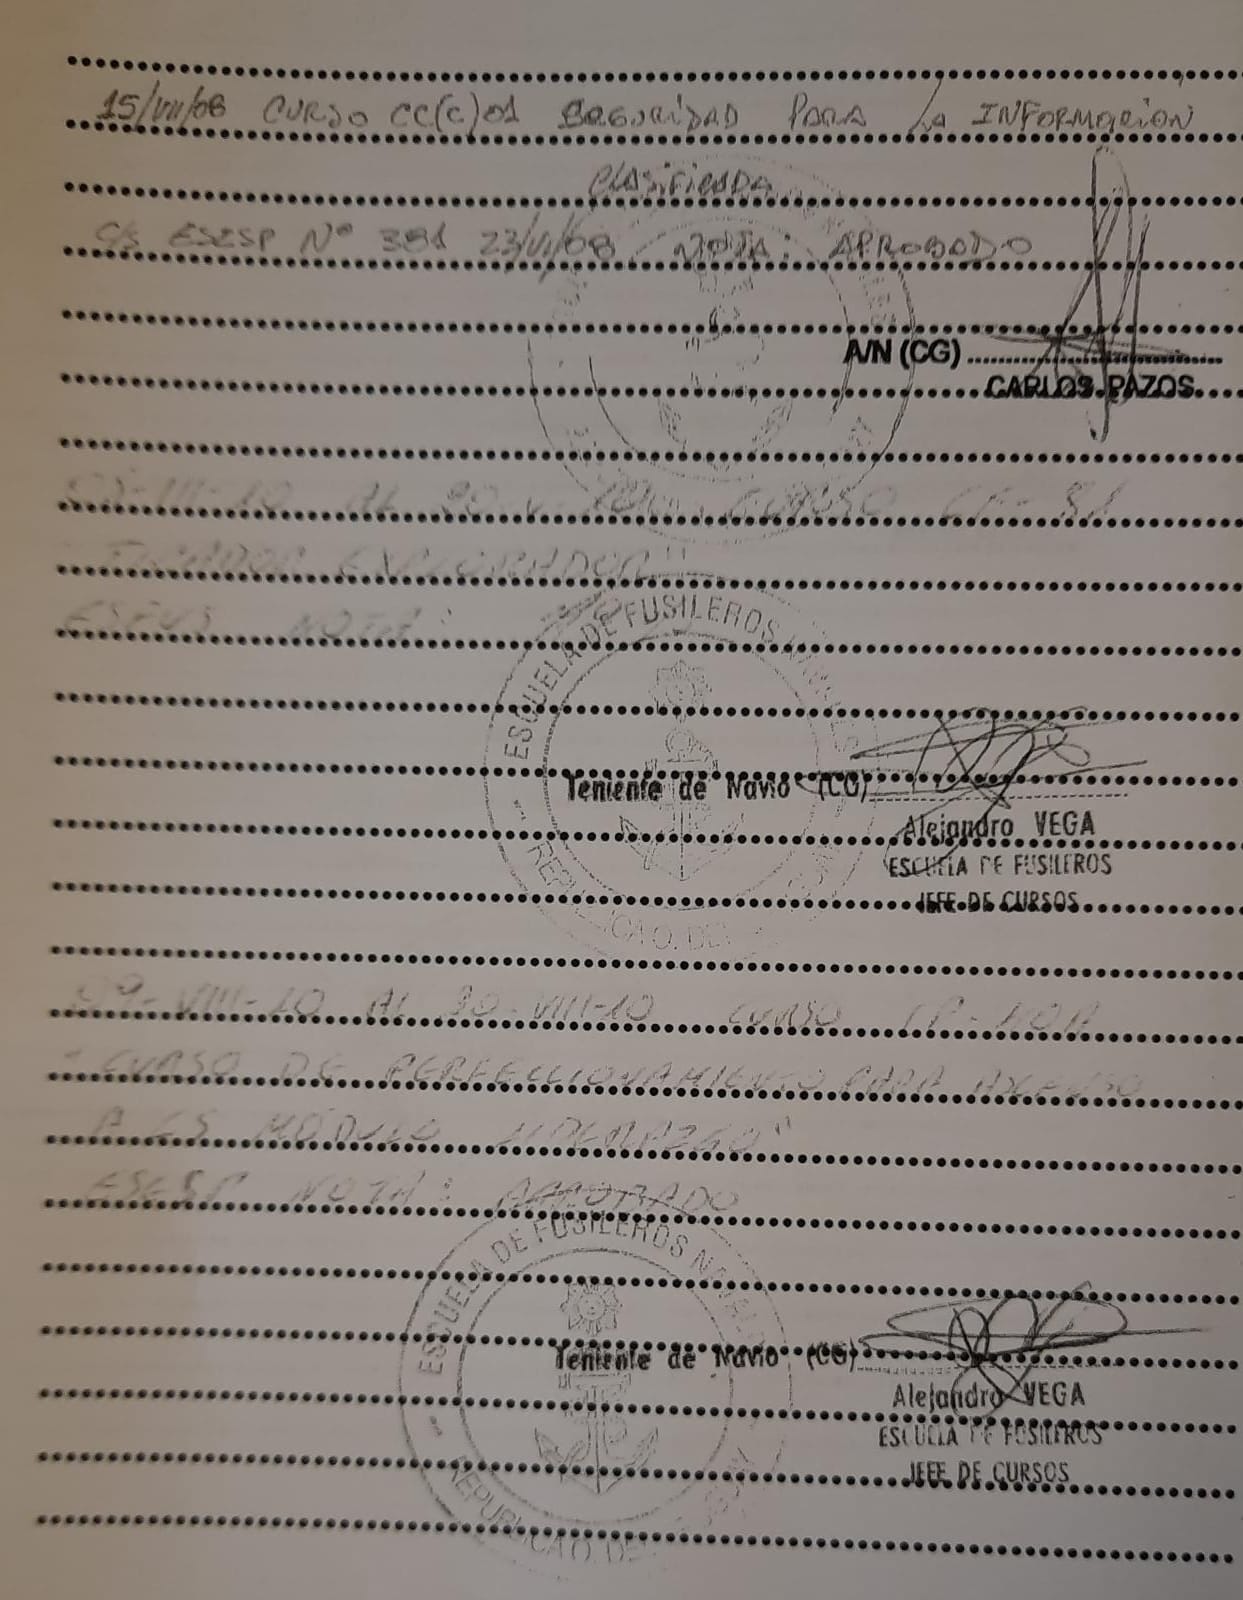 15/VII/08 CURSO CC(C)01 SEGURIDAD PARA LA INFORMACION
CLASIFICADA
C/S ESESP Nº 381 23/VI/08 NOTA: APROBADO
A/N (CG)
CARLOS PAZOS
AL CURSO
EXPLORADOR"
NOTA:
ESCUELA DE FUSILEROS NAVALES
Teniente de Navio (CG)
Alejandro VEGA
ESCUELA DE FUSILEROS
JEFE DE CURSOS
-VIII-10 AL 30-VIII-10 CURSO
CURSO DE PERFECCIONAMIENTO PARA ASCENSO
A CS MODULO LIDERAZGO"
ESESP NOTA: APROBADO
ESCUELA DE FUSILEROS NAVALES
Teniente de Navio (CG)
Alejandro VEGA
ESCUELA DE FUSILEROS
JEFE DE CURSOS